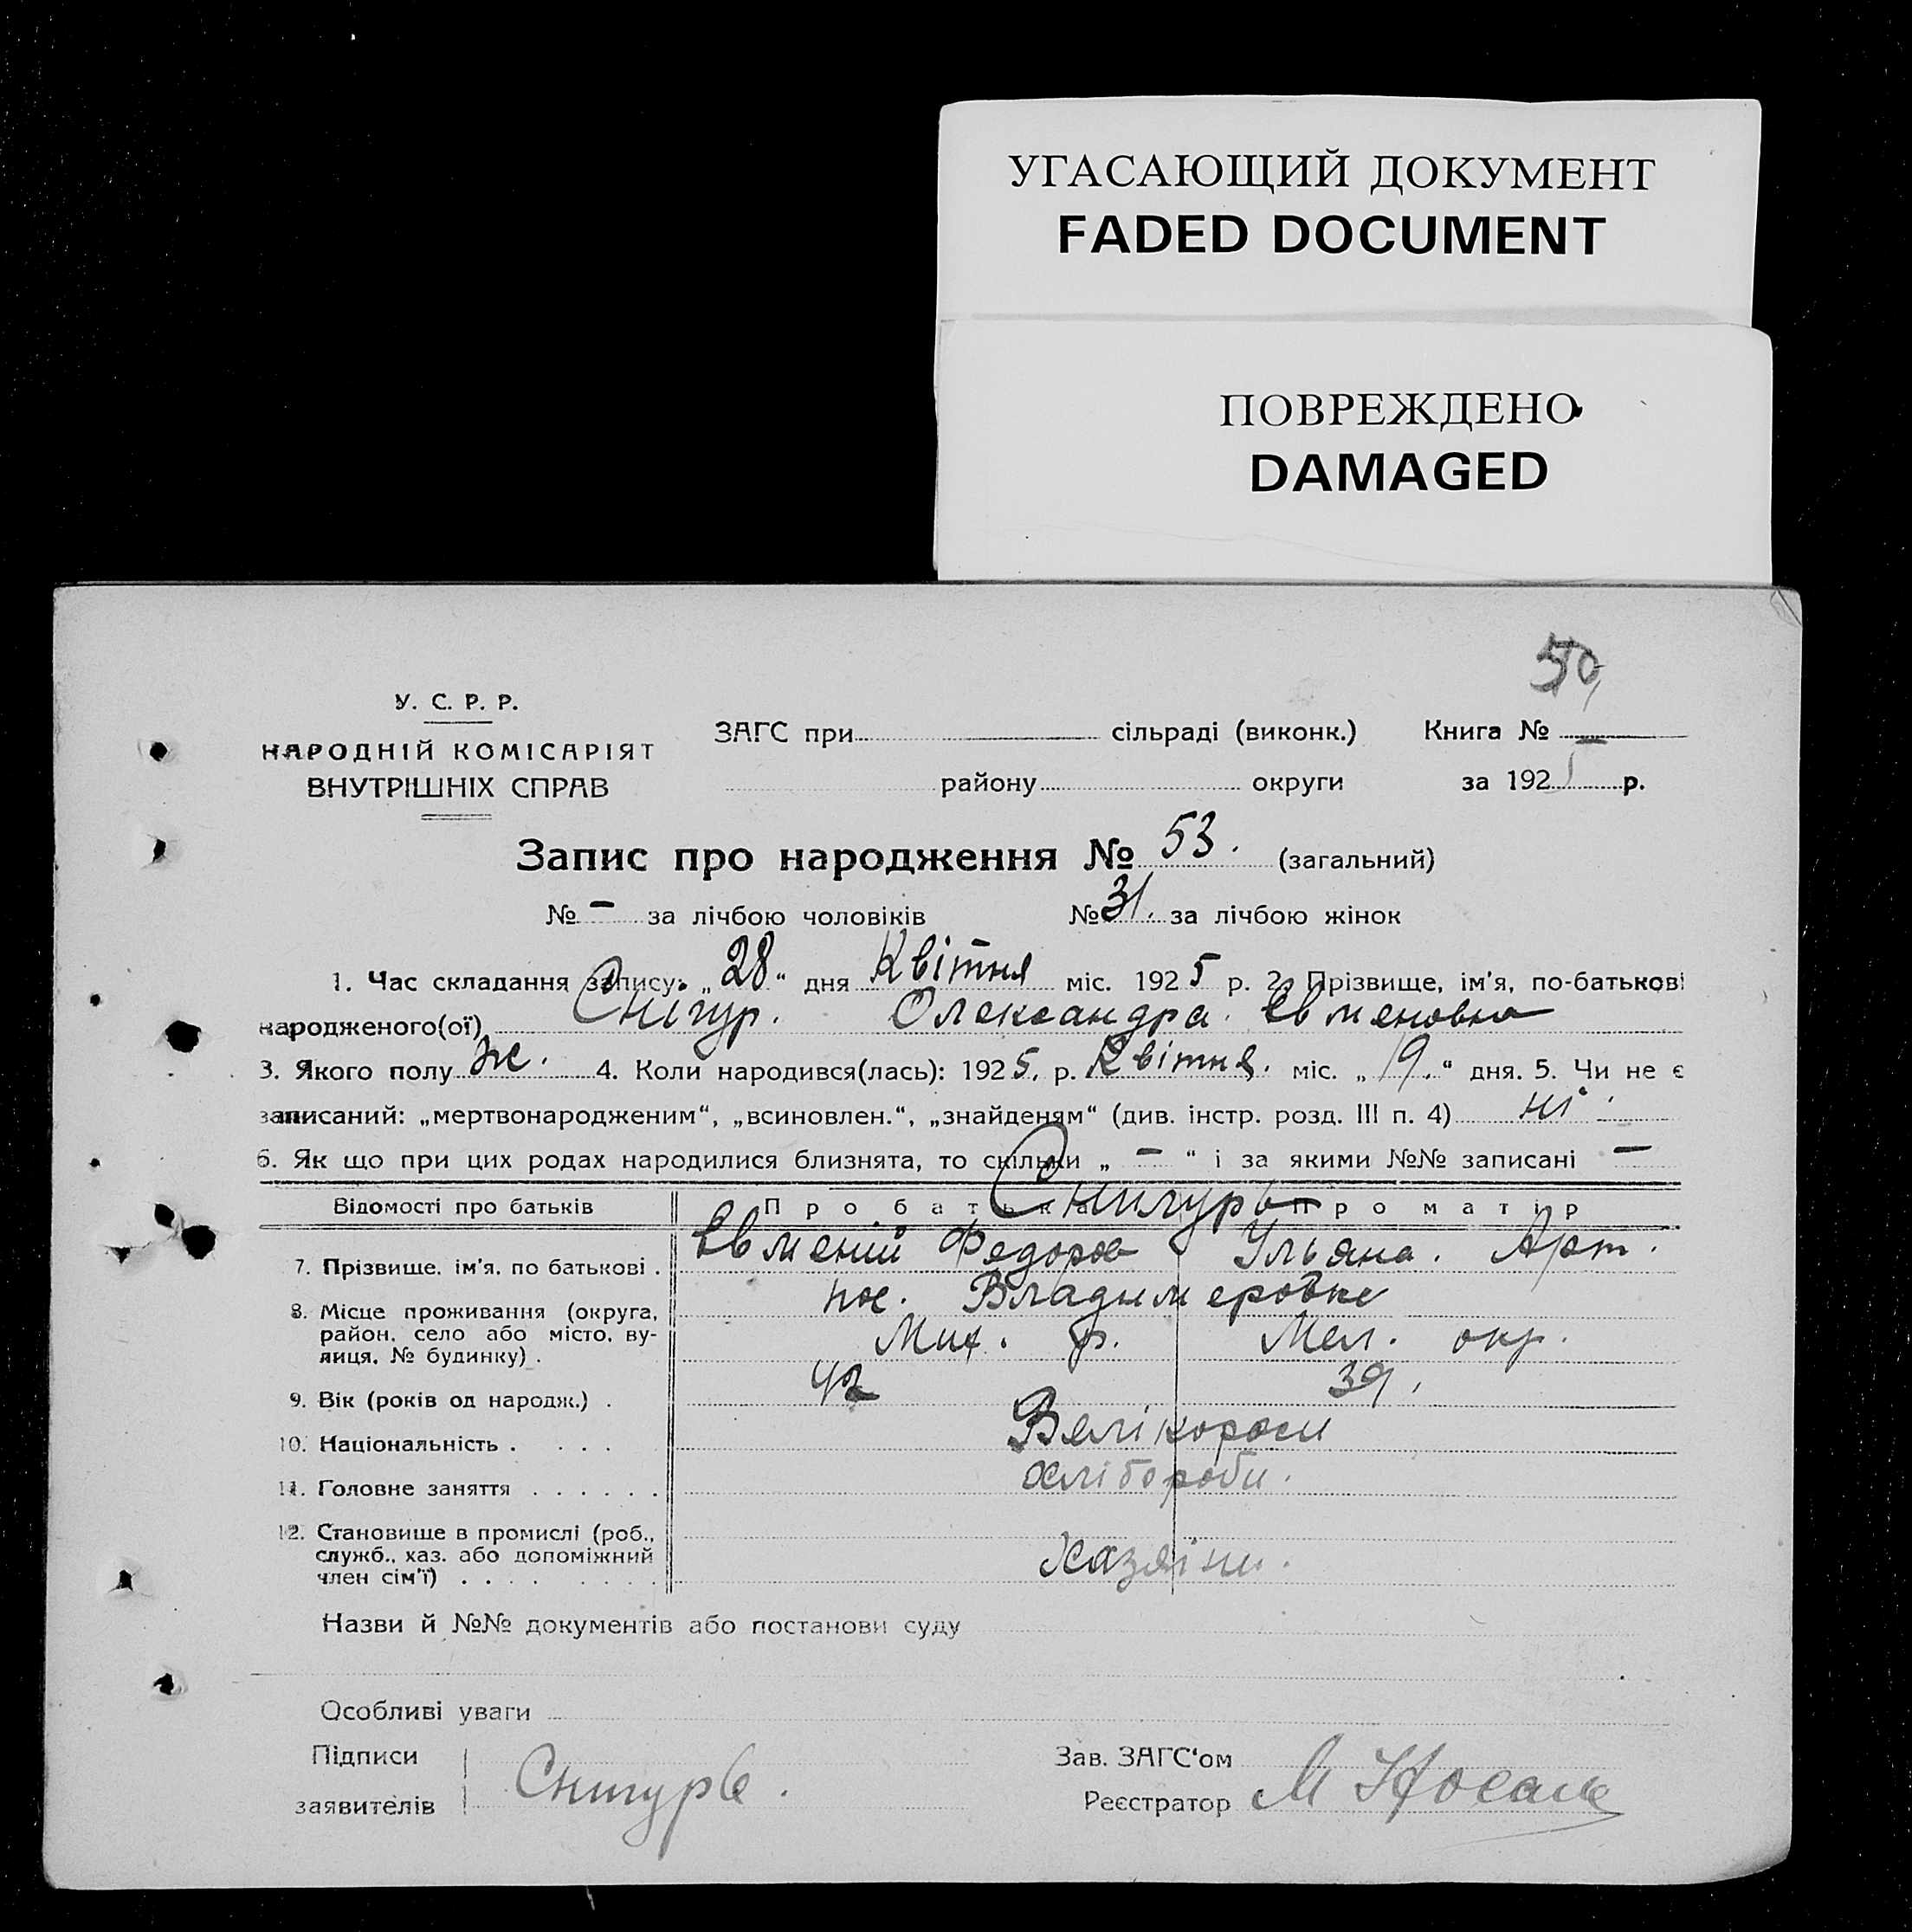 УГАСАЮЩИЙ ДОКУМЕНТ
FADED DOCUMENT
ПОВРЕЖДЕНО
DAMAGED
50
У. С. Р. Р.
НАРОДНІЙ КОМІСАРІЯТ
ВНУТРІШНІХ СПРАВ
ЗАГС при сільраді (виконк.) Книга № —
району округи за 1925 р.
Запис про народження № 53. (загальний)
№ – за лічбою чоловіків № 31. за лічбою жінок
1. Час складання запису: „28“ дня Квітня міс. 1925 р. 2. Прізвище, ім'я, по-батькові
народженого(ої) Снігур. Олександра Евменовна
3. Якого полу Ж. 4. Коли народився(лась): 1925. р. Квітня. міс. „19.“ дня. 5. Чи не є
записаний: „мертвонародженим“, „всиновлен.“, „знайденям“ (див. інстр. розд. III п. 4) ні
6. Як що при цих родах народилися близнята, то скільки „ – “ і за якими №№ записані –
Відомості про батьків Про батька Про матір
Снигурь
7. Прізвище, ім'я, по батькові . Евмений Федоров Ульяна. Арт.
8. Місце проживання (округа, пос. Владимеровке
район, село або місто, ву- Мих. р. Мел. окр.
лиця, № будинку) .
9. Вік (років од народж.) . 42 39.
10. Національність . . . . Велікороси
11. Головне заняття . . . . . . хлібороби.
12. Становище в промислі (роб.,
служб., хаз. або допоміжний Хазяіни.
член сім'ї) . . . . . . . .
Назви й №№ документів або постанови суду
Особливі уваги
Підписи Зав. ЗАГС'ом
заявителів Снигурь. Реєстратор М Носаль